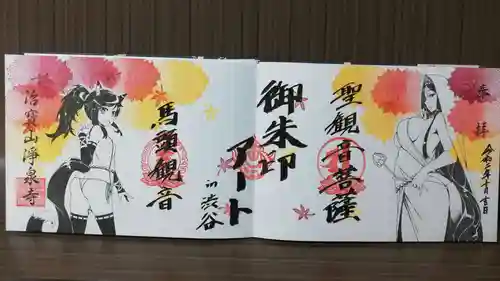 奉拝
令和元年十月吉日
聖観音菩薩
御朱印
アート
in渋谷
馬頭観音
治寒山浄泉寺